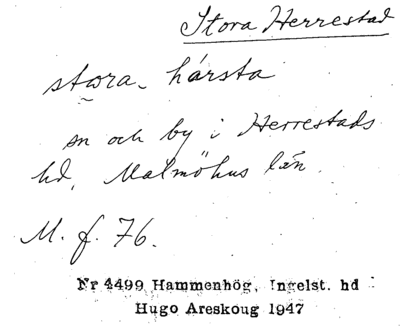 Stora Herrestad
stora härsta
sn och by i Herrestads
hd, Malmöhus län.
M. f. 76.
Nr 4499 Hammenhög, Ingelst. hd
Hugo Areskoug 1947